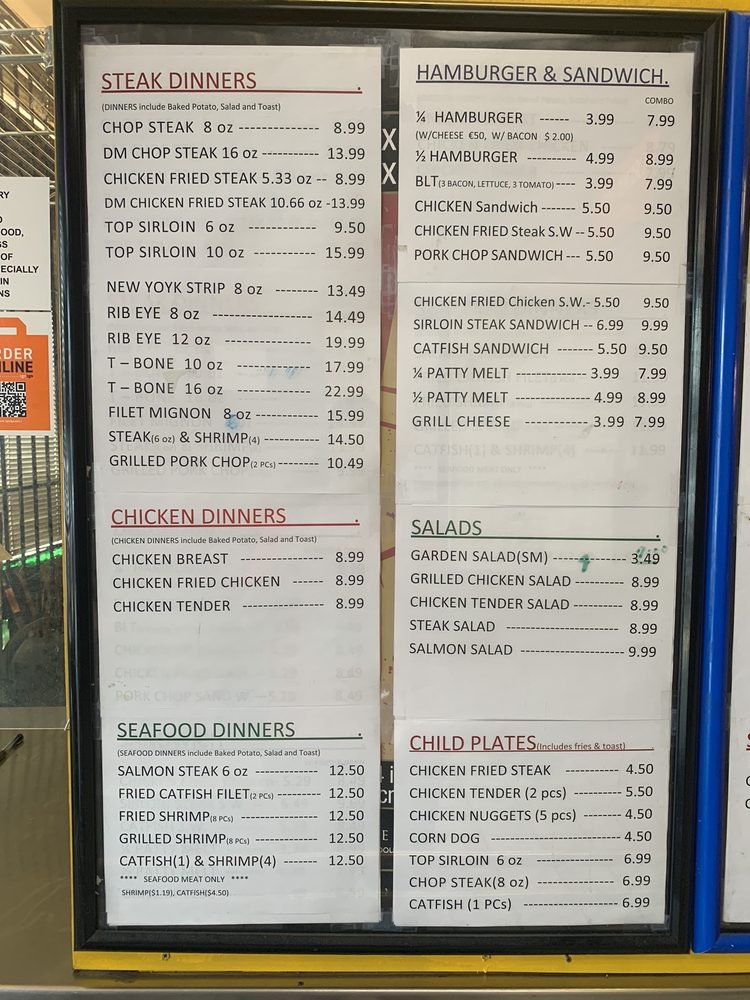 STEAK DINNERS .
(DINNERS include Baked Potato, Salad and Toast)
CHOP STEAK 8 oz -------------- 8.99
DM CHOP STEAK 16 oz ---------- 13.99
CHICKEN FRIED STEAK 5.33 oz -- 8.99
DM CHICKEN FRIED STEAK 10.66 oz -13.99
TOP SIRLOIN 6 oz ------------ 9.50
TOP SIRLOIN 10 oz ----------- 15.99
NEW YOYK STRIP 8 oz --------- 13.49
RIB EYE 8 oz ----------------- 14.49
RIB EYE 12 oz ---------------- 19.99
T – BONE 10 oz --------------- 17.99
T – BONE 16 oz --------------- 22.99
FILET MIGNON 8 oz ----------- 15.99
STEAK(6 oz) & SHRIMP(4) ---------- 14.50
GRILLED PORK CHOP(2 PCs) -------- 10.49
CHICKEN DINNERS .
(CHICKEN DINNERS include Baked Potato, Salad and Toast)
CHICKEN BREAST --------------- 8.99
CHICKEN FRIED CHICKEN ------ 8.99
CHICKEN TENDER --------------- 8.99
SEAFOOD DINNERS .
(SEAFOOD DINNERS include Baked Potato, Salad and Toast)
SALMON STEAK 6 oz ------------ 12.50
FRIED CATFISH FILET(2 PCs) ---------- 12.50
FRIED SHRIMP(8 PCs) --------------- 12.50
GRILLED SHRIMP(8 PCs) ------------ 12.50
CATFISH(1) & SHRIMP(4) ------- 12.50
**** SEAFOOD MEAT ONLY ****
SHRIMP($1.19), CATFISH($4.50)
HAMBURGER & SANDWICH.
COMBO
¼ HAMBURGER ------ 3.99 7.99
(W/CHEESE €50, W/ BACON $ 2.00)
½ HAMBURGER ----------- 4.99 8.99
BLT(3 BACON, LETTUCE, 3 TOMATO) ---- 3.99 7.99
CHICKEN Sandwich ------- 5.50 9.50
CHICKEN FRIED Steak S.W -- 5.50 9.50
PORK CHOP SANDWICH --- 5.50 9.50
CHICKEN FRIED Chicken S.W.- 5.50 9.50
SIRLOIN STEAK SANDWICH -- 6.99 9.99
CATFISH SANDWICH ------- 5.50 9.50
¼ PATTY MELT -------------- 3.99 7.99
½ PATTY MELT -------------- 4.99 8.99
GRILL CHEESE ----------- 3.99 7.99
SALADS .
GARDEN SALAD(SM) -------------- 3.49
GRILLED CHICKEN SALAD ---------- 8.99
CHICKEN TENDER SALAD ---------- 8.99
STEAK SALAD --------------------- 8.99
SALMON SALAD -------------------- 9.99
CHILD PLATES(Includes fries & toast) .
CHICKEN FRIED STEAK ---------- 4.50
CHICKEN TENDER (2 pcs) -------- 5.50
CHICKEN NUGGETS (5 pcs) ------- 4.50
CORN DOG ------------------------ 4.50
TOP SIRLOIN 6 oz --------------- 6.99
CHOP STEAK(8 oz) --------------- 6.99
CATFISH (1 PCs) ------------------- 6.99